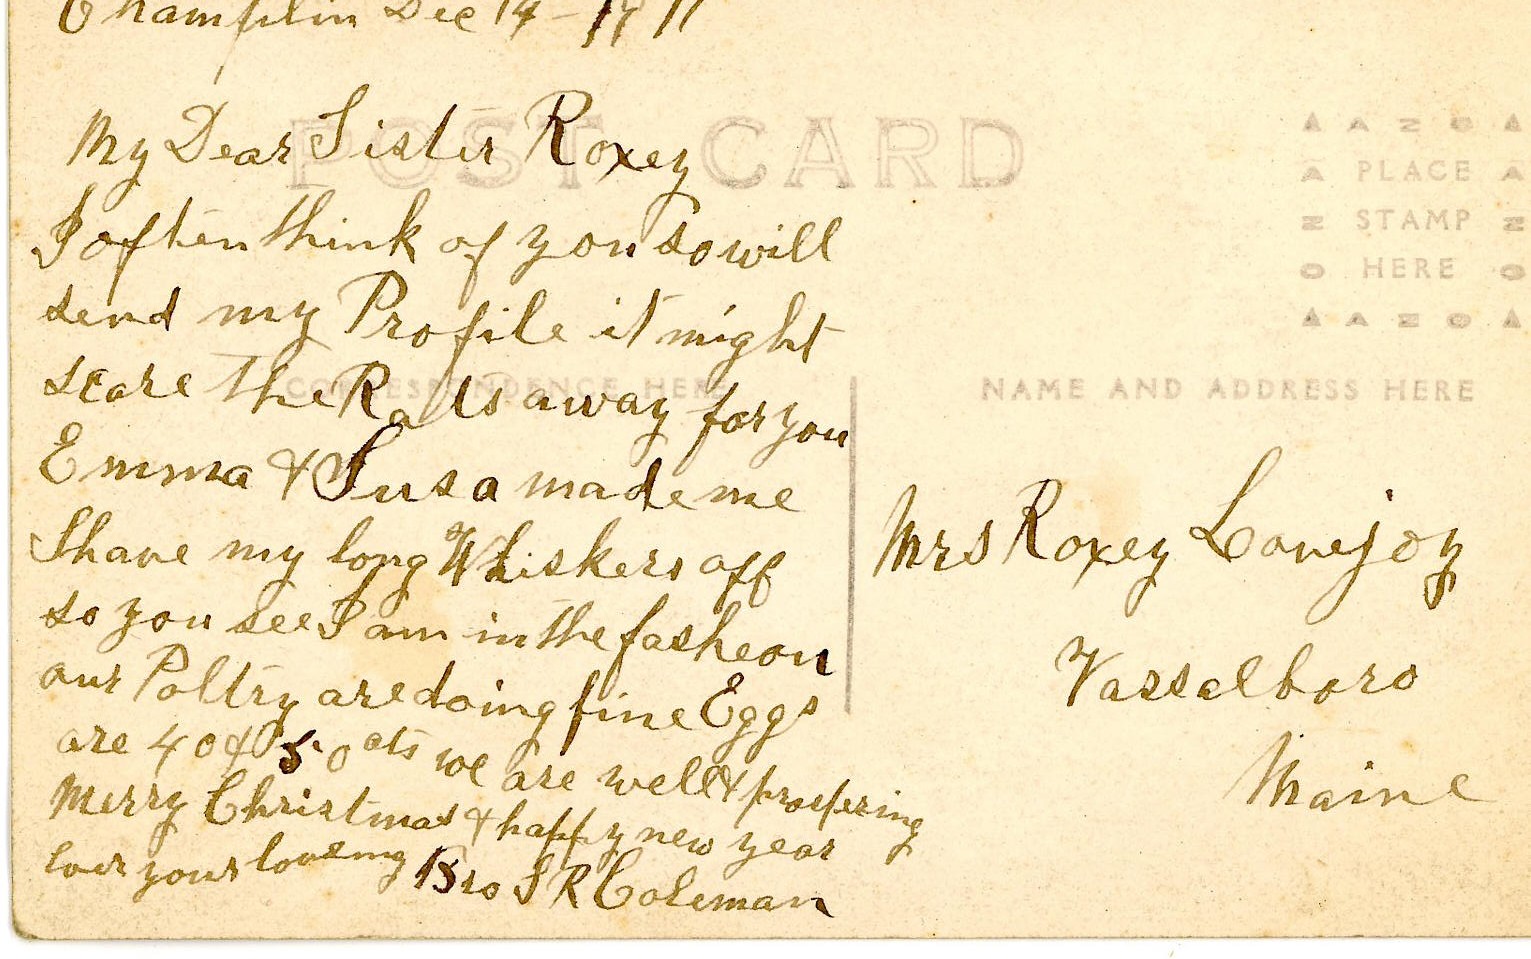 Champlin Dec 14 - 1911
POST CARD
My Dear Sister Roxey
I often think of you so will
send my Profile it might
scare the Rats away for you
Emma & Susa made me
Shave my long Whiskers off
so you see I am in the fasheon
our Poltry are doing fine Eggs
are 40 & 50 cts we are well & prospering
Merry Christmas & happy new year
ever your loveing Bro S R Coleman
CORRESPONDENCE HERE
AZO
PLACE
STAMP
HERE
AZO
NAME AND ADDRESS HERE
Mrs Roxey Lovejoy
Vassalboro
Maine